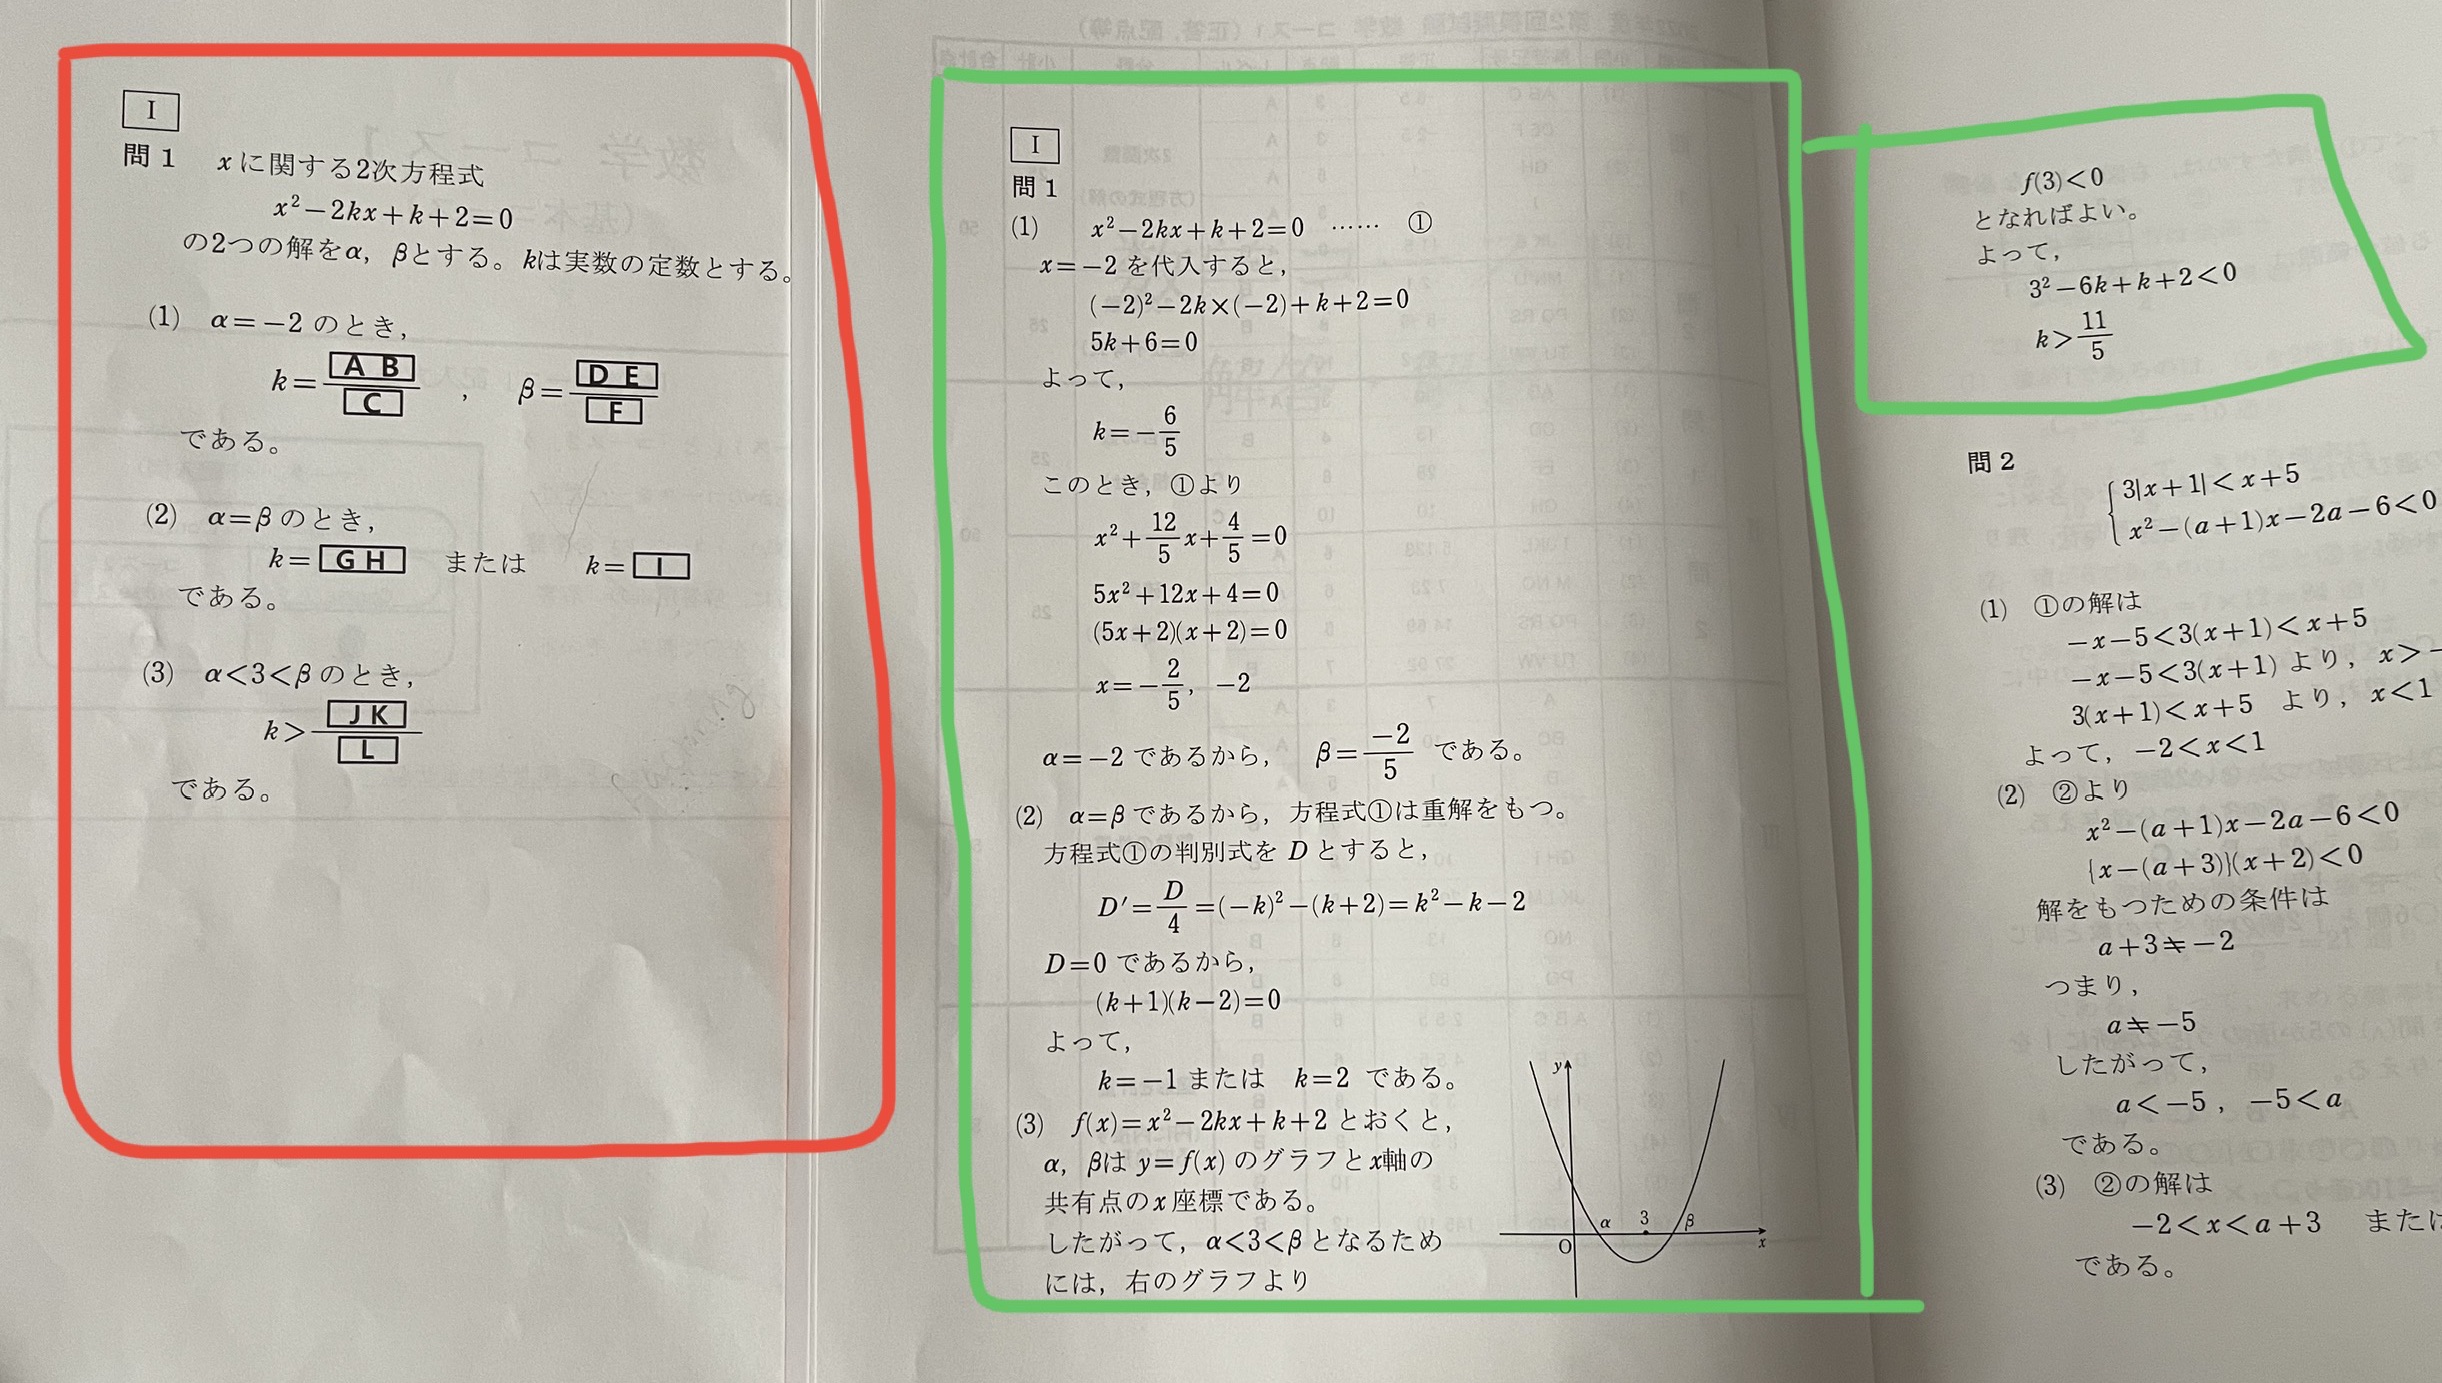 I
問1 xに関する2次方程式
x²−2kx+k+2=0
の2つの解をα, βとする。kは実数の定数とする。
(1) α=−2のとき,
k=AB/C , β=DE/F
である。
(2) α=βのとき,
k=GH または k=I
である。
(3) α<3<βのとき,
k>JK/L
である。
I
問1
(1) x²−2kx+k+2=0 …… ①
x=−2を代入すると,
(−2)²−2k×(−2)+k+2=0
5k+6=0
よって,
k=−6/5
このとき, ①より
x²+12/5x+4/5=0
5x²+12x+4=0
(5x+2)(x+2)=0
x=−2/5, −2
α=−2であるから, β=−2/5 である。
(2) α=βであるから, 方程式①は重解をもつ。
方程式①の判別式をDとすると,
D′=D/4=(−k)²−(k+2)=k²−k−2
D=0であるから,
(k+1)(k−2)=0
よって,
k=−1 または k=2 である。
(3) f(x)=x²−2kx+k+2とおくと,
α, βはy=f(x)のグラフとx軸の
共有点のx座標である。
したがって, α<3<βとなるため
には, 右のグラフより
y
α 3 β
O x
f(3)<0
となればよい。
よって,
3²−6k+k+2<0
k>11/5
問2
3|x+1|<x+5
x²−(a+1)x−2a−6<0
(1) ①の解は
−x−5<3(x+1)<x+5
−x−5<3(x+1)より, x>−
3(x+1)<x+5 より, x<1
よって, −2<x<1
(2) ②より
x²−(a+1)x−2a−6<0
{x−(a+3)}(x+2)<0
解をもつための条件は
a+3≠−2
つまり,
a≠−5
したがって,
a<−5 , −5<a
である。
(3) ②の解は
−2<x<a+3 または
である。